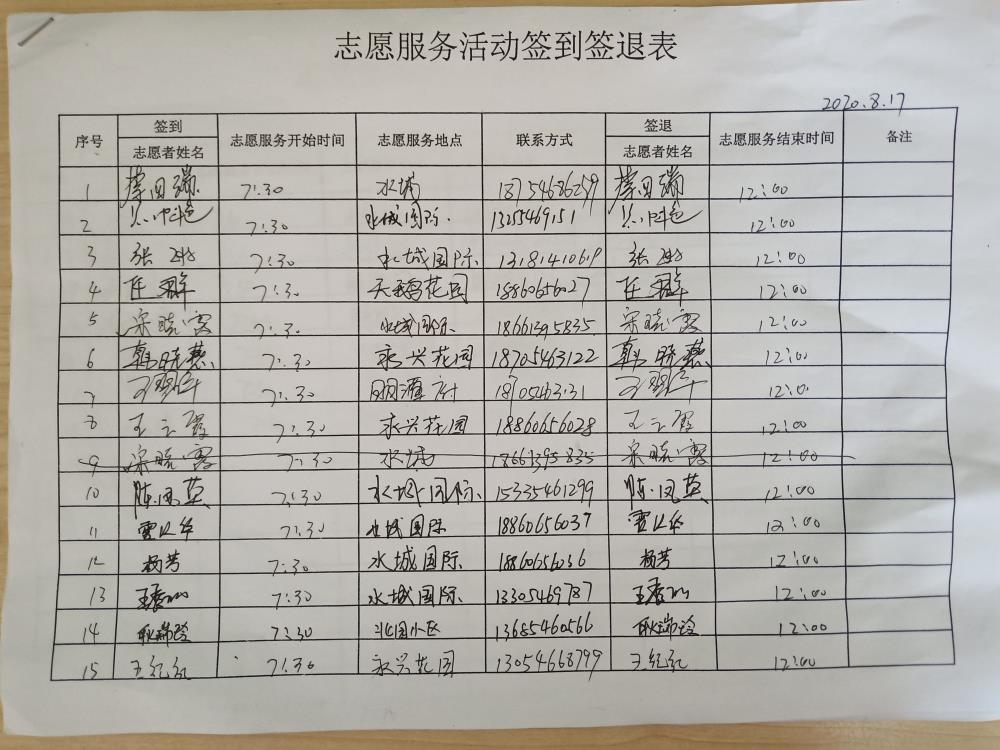 志愿服务活动签到签退表
2020.8.17
序号 签到 志愿服务开始时间 志愿服务地点 联系方式 签退 志愿服务结束时间 备注
志愿者姓名 志愿者姓名
1 7:30 水城 18754686259 12:00
2 7:30 水城国际. 13255469151 12:00
3 张 7:30 水城国际. 13181410619 张 12:00
4 任 7:30 天鹅花园 18860656027 任 12:00
5 宋晓霞 7:30 水城国际 18661395835 宋晓霞 12:00
6 韩晓慧 7:30 永兴花园 18705463122 韩晓慧 12:00
7 7:30 府 12:00
8 王云霞 7:30 永兴花园 18860656028 王云霞 12:00
9 宋晓霞 7:30 水城 18661395835 宋晓霞 12:00
10 陈凤英 7:30 水城国际. 15335461299 陈凤英 12:00
11 7:30 水城国际 18860656037 12:00
12 杨芳 7:30 水城国际. 18860656036 杨芳 12:00
13 王 7:30 水城国际. 13305469787 王 12:00
14 耿瑞玲 7:30 小区 13685460566 耿瑞玲 12:00
15 王纪红 7:30 永兴花园 13054668799 王纪红 12:00